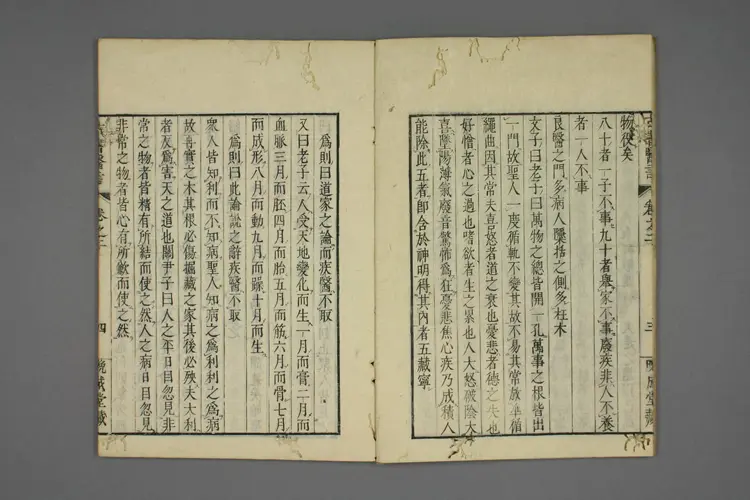 物役矣
八十者一子不事九十者舉家不事廢疾非人不養
者一人不事
良醫之門多病人檃括之側多枉木
文子曰老子曰萬物之總皆閱一孔萬事之根皆出
一門故聖人一度循軌不變其故不易其常放準循
繩曲因其常夫喜怒者道之衰也憂悲者德之失也
好憎者心之過也嗜欲者生之累也人大怒破陰大
喜墜陽薄氣發音驚怖為狂憂悲焦心疾乃成積人
能除此五者即合於神明得其內者五藏寧
三
為則曰道家之論而疾醫不取
又曰老子云人受天地變化而生一月而膏二月而
血脈三月而胚四月而胎五月而筋六月而骨七月
而成形八月而動九月而躁十月而生
為則曰此論說之辭疾醫不取
眾人皆知利而不知病聖人知病之為利利之為病
故喜實之木其根必傷掘藏之家其後必殃夫大利
者反為害天之道也關尹子曰人之平日目忽見非
常之物者皆精有所結而使之然人之病日目忽見
非常之物者皆心有所歉而使之然
卷之二
四